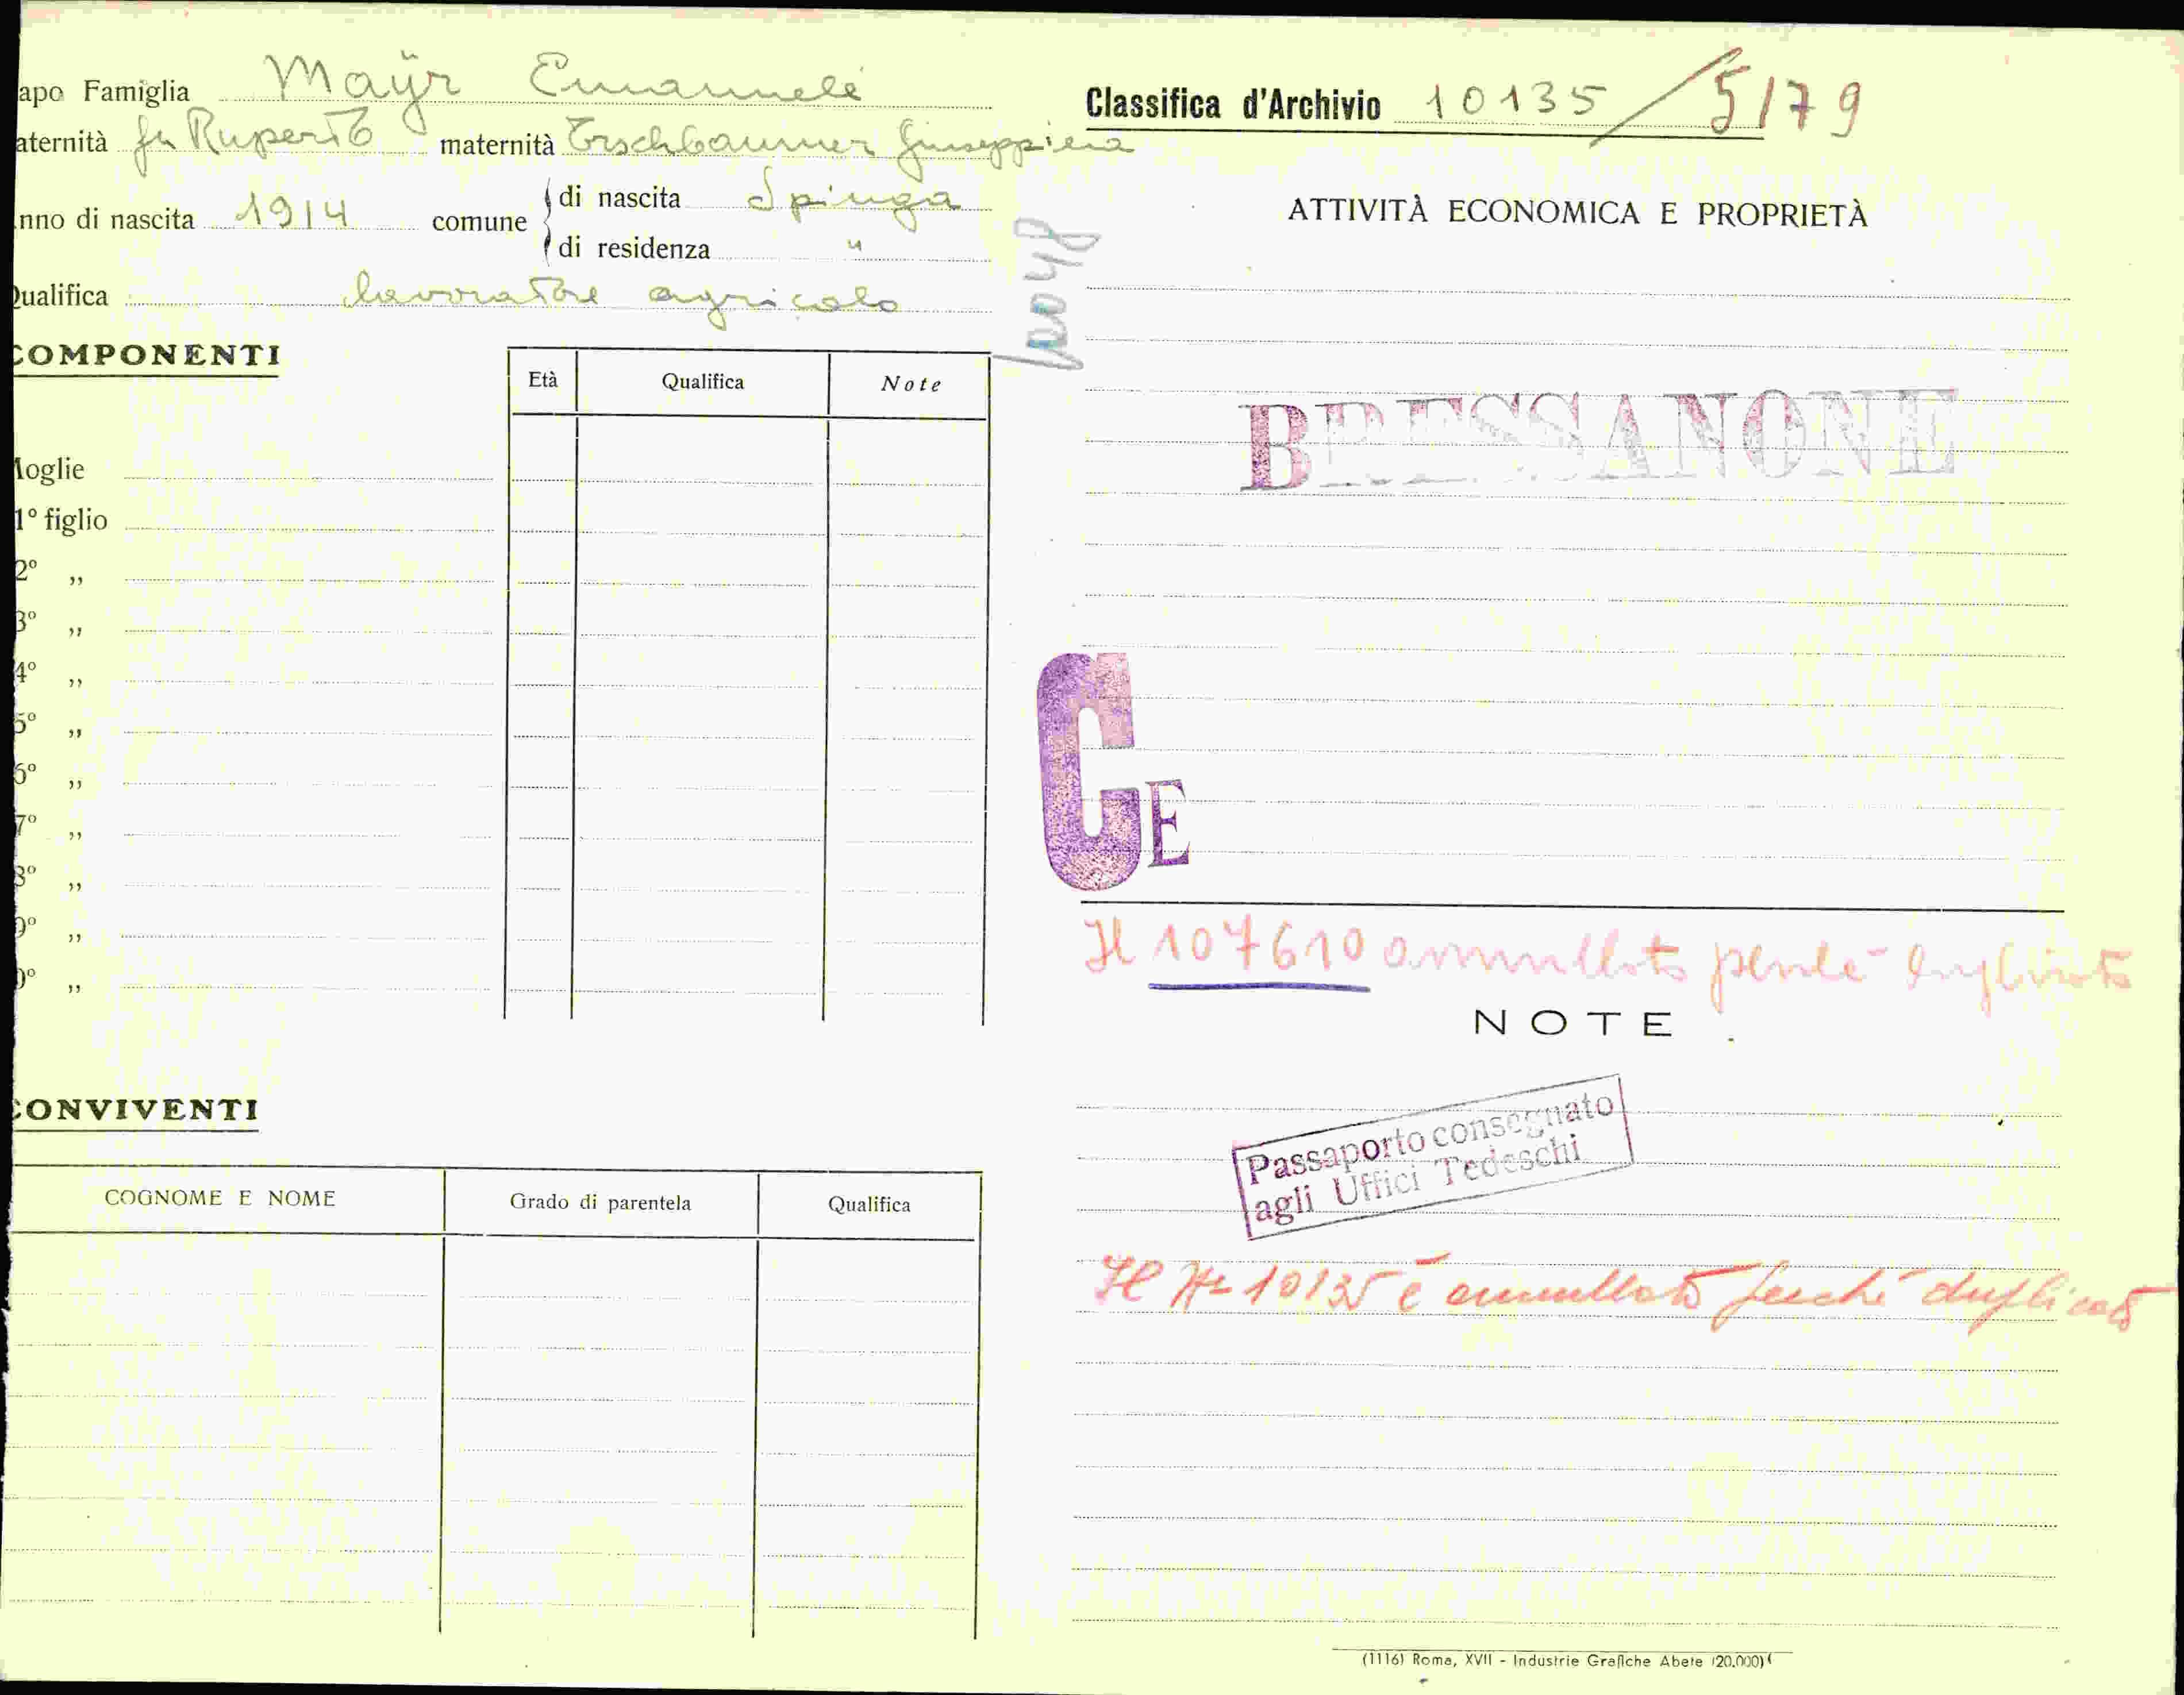 apo Famiglia Maÿr Emanuele
aternità fu Ruperto maternità Erschbaumer Giuseppina
nno di nascita 1914 comune di nascita Spinga
di residenza "
Qualifica lavoratore agricolo
COMPONENTI
Età Qualifica Note
Moglie
1° figlio
2° ,,
3° ,,
4° ,,
5° ,,
6° ,,
7° ,,
8° ,,
9° ,,
0° ,,
CONVIVENTI
COGNOME E NOME Grado di parentela Qualifica
Classifica d'Archivio 10135/5179
ATTIVITÀ ECONOMICA E PROPRIETÀ
BRESSANONE
CE
Il 107610 annullato perché duplicato
NOTE
Passaporto consegnato
agli Uffici Tedeschi
Il N= 10135 è annullato perché duplicato
(1116) Roma, XVII - Industrie Grafiche Abete (20.000)